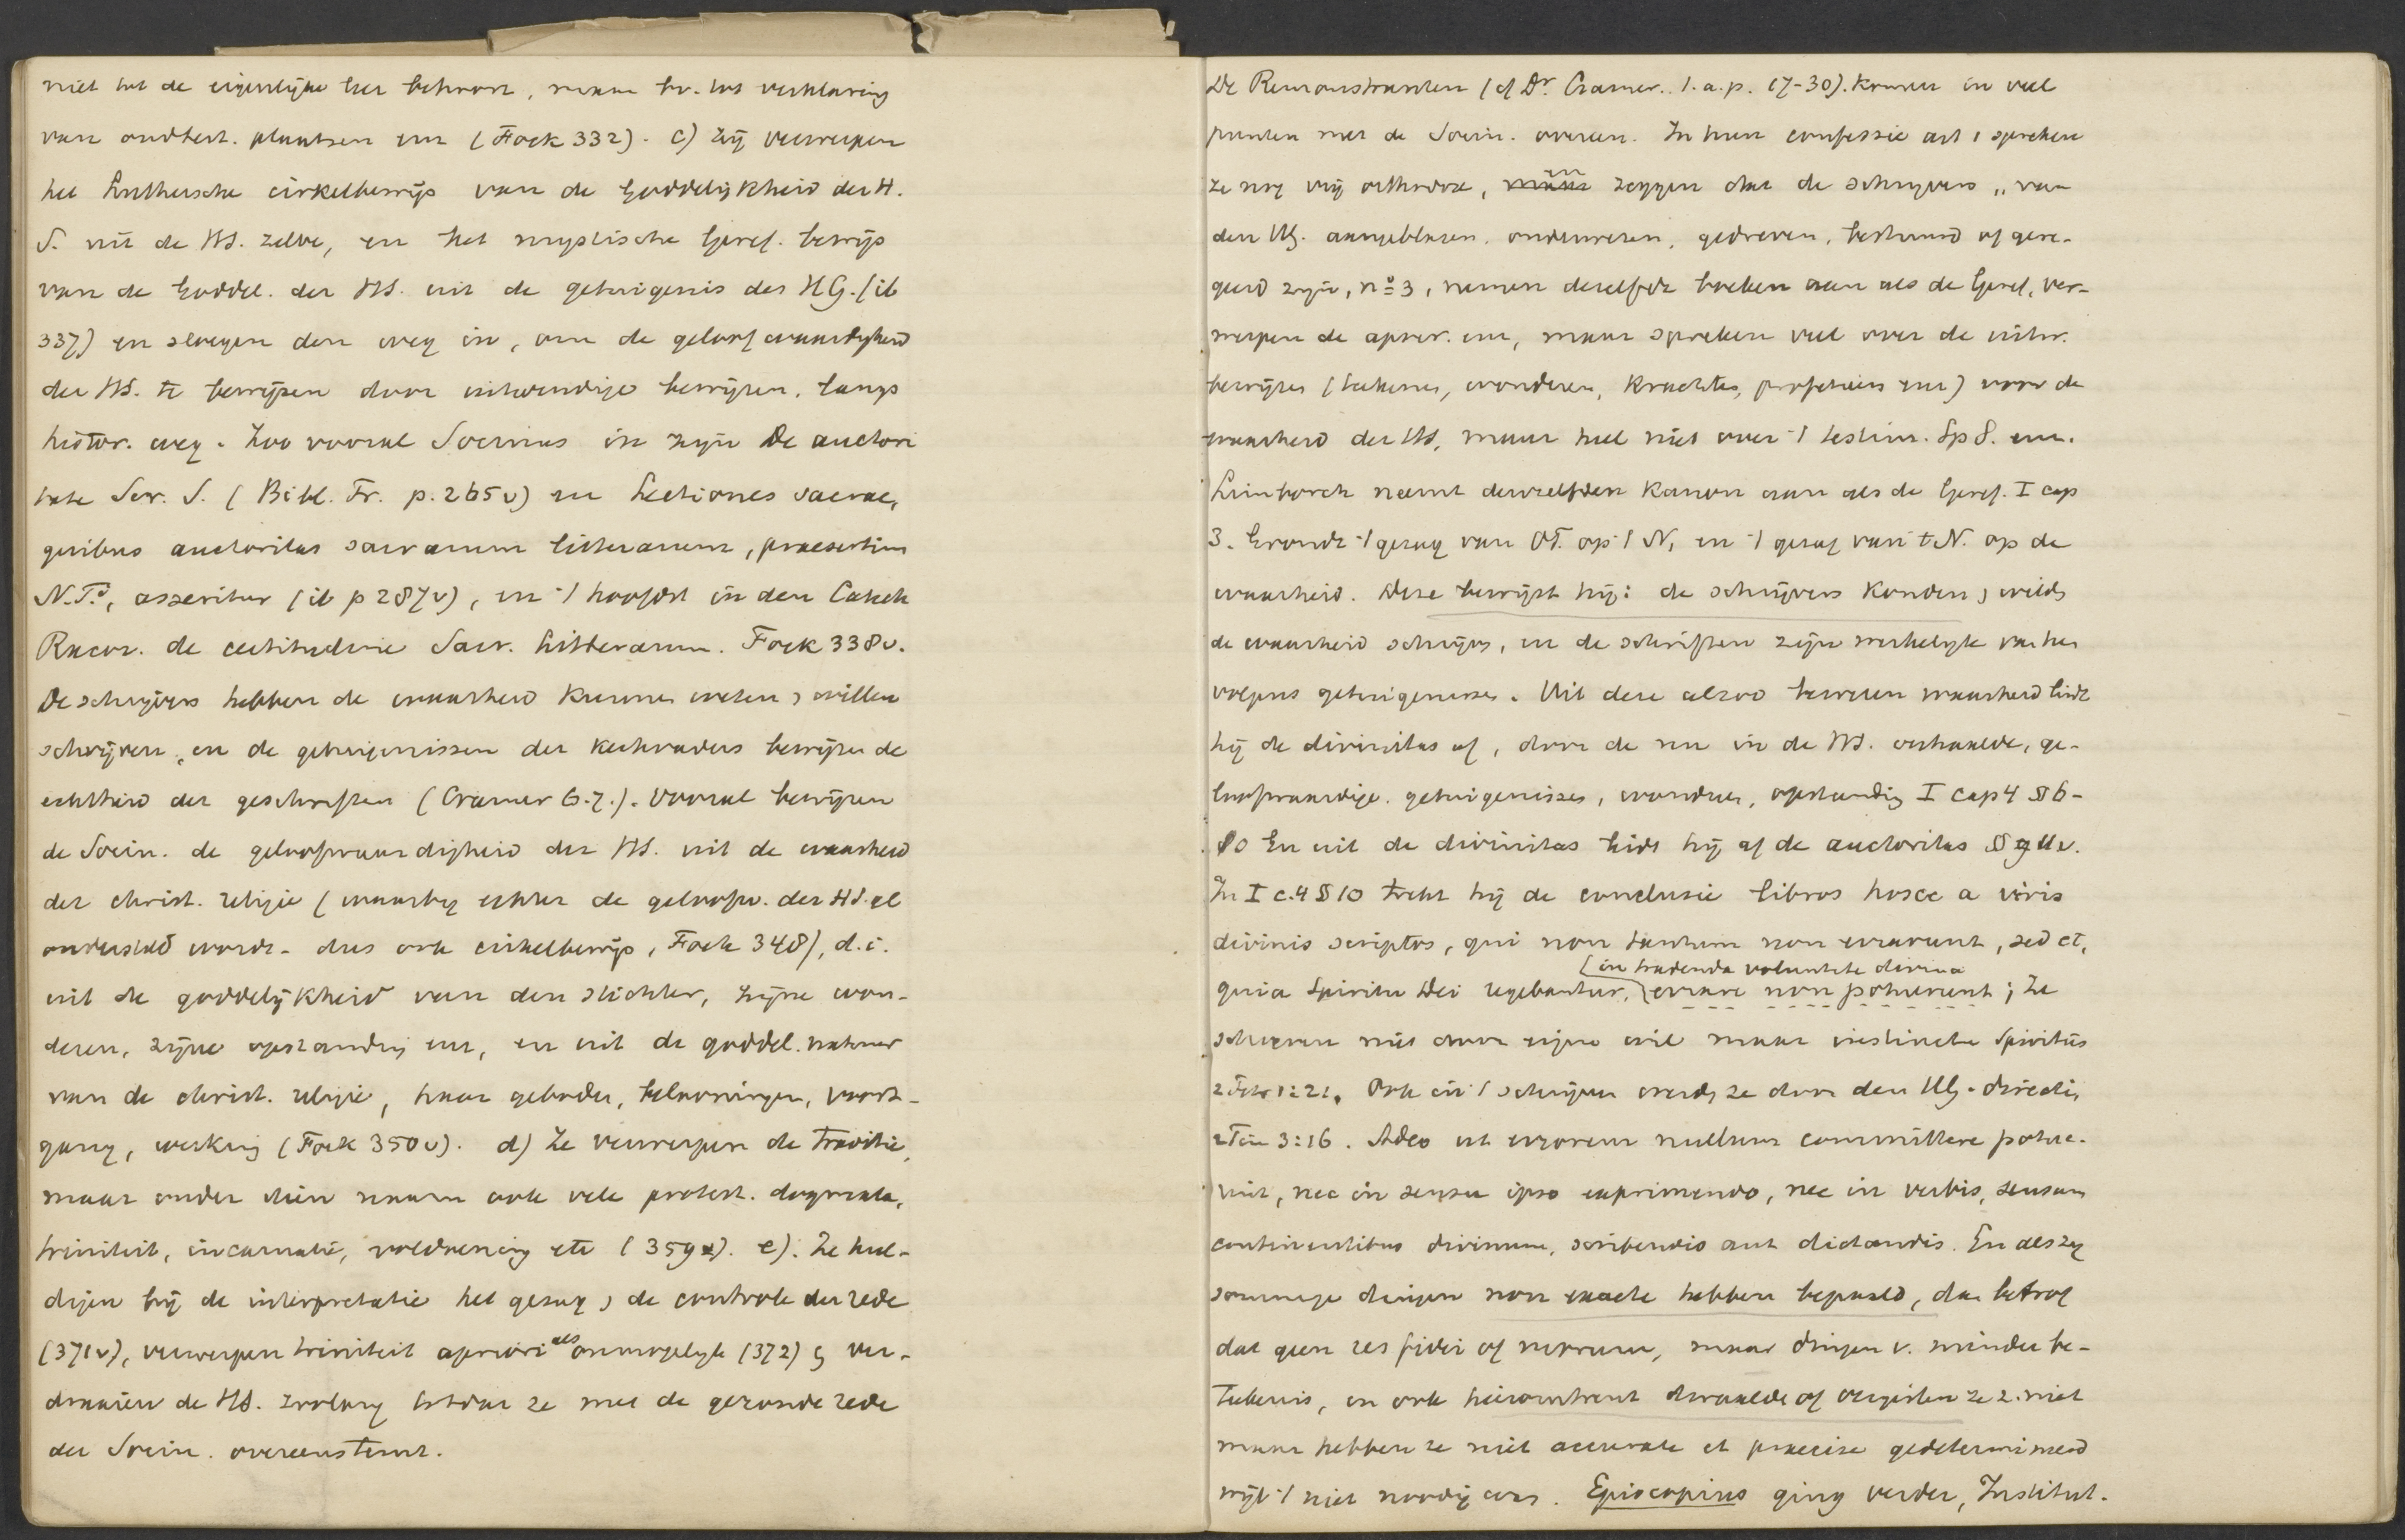 niet tot de eigenlijke leer behoort, maar br. tot verklaring
van oudtest. plaatsen enz (Fock 332). c) Zij verwerpen
het Luthersche cirkelbewijs van de Goddelijkheid der H.
S. uit de HS. zelve, en het mystische Geref. bewijs
van de Goddel. der HS. uit de getuigenis des HG. (ib
337) en slaegen den weg in, om de geloofwaardigheid
der HS. te bewijzen door uitwendige bewijzen, langs
histor. weg. Zoo vooral Socinus in zijn De auctori
tate Scr. S. (Bibl. Fr. p. 265v) en Lectiones sacrae,
quibus auctoritas sacrarum litterarum, praesertim
N.T.i, asseritur (ib p 287v), en 't hoofdst in den Catech
Racov. de certitudine Sacr. Litterarum. Fock 338v.
De schrijvers hebben de waarheid kunnen weten, willen
schrijven, en de getuigenissen der kerkvaders bewijzen de
echtheid der geschriften (Cramer 6.7.). Vooral bewijzen
de Socin. de geloofwaardigheid der HS. uit de waarheid
der christ. religie (waarbij echter de geloofw. der HS. al
ondersteld wordt - dus ook cirkelbewijs, Fock 348), d.i.
uit de goddelijkheid van den stichter, zijne won-
deren, zijne opstanding enz, en uit de goddel. natuur
van de christ. religie, haar geboden, belooningen, voort-
gang, werking (Fock 350v). d) Ze verwerpen de traditie,
maar onder dien naam ook vele protest. dogmata,
triniteit, incarnatie, voldoening etc (359v). e). Ze hul-
digen bij de interpretatie het gezag, de controle der rede
(371v), verwerpen triniteit apriori als onmogelijk (372) & ver-
draaien de HS. zoolang totdat ze met de gezonde rede
der Socin. overeenstemt.
De Remonstranten (cf Dr. Cramer.. l. a. p. 17-30). Komen in veel
punten met de Socin. overeen. In hun confessie art 1 spreken
ze nog vrij orthodox, en zeggen dat de schrijvers „van
den HG. aangeblazen, onderwezen, gedreven, bestuurd of gere-
geerd zijn, no 3, nemen dezelfde boeken aan als de Geref, ver-
werpen de apocr. enz, maar spreken veel over de uitw.
bewijzen (teekenen, wonderen, krachten, profetieën enz) voor de
waarheid der HS, maar heel niet over 't testim. Sp S. enz.
Limborch neemt denzelfden Kanon aan als de Geref. I cap
3. Grondt 't gezag van OT. op 't N, en 't gezag van 't N. op de
waarheid. Deze bewijst hij: de schrijvers konden, wilden
de waarheid schrijven, en de schriften zijn werkelijk van hen
volgens getuigenissen. Uit deze alzoo bewezen waarheid leidt
hij de divinitas af, door de nu in de HS. verhaalde, ge-
loofwaardige getuigenissen, wonderen, opstanding I cap 4 § 6-
10 En uit de divinitas leidt hij af de auctoritas § 9 11 v.
In I c. 4 § 10 trekt hij de conclusie libros hosce a viris
divinis scriptos, qui non tantum non erraverunt, sed et,
quia Spiritu Dei regebantur, (in tradenda voluntate divina
errare non potuerunt; ze
schreven niet door eigen wil maar instinctu Spiritus
2 Petr 1:21. Ook in 't schrijven werden ze door den HG. directi,
2 Tim 3:16. Adeo ut errorem nullum committere potue-
rint, nec in sensu ipso exprimendo, nec in verbis, sensum
continentibus divinum, scribendis aut dictandis. En als zij
sommige dingen non exacte hebben bepaald, dan betrof
dat geen res fidei of morum, maar dingen v. minder be-
teekenis, en ook hieromtrent dwaalden of vergisten ze z. niet
maar hebben ze niet accurate et praecise gedetermineerd
wijl 't niet noodig was. Episcopius ging verder, Institut.